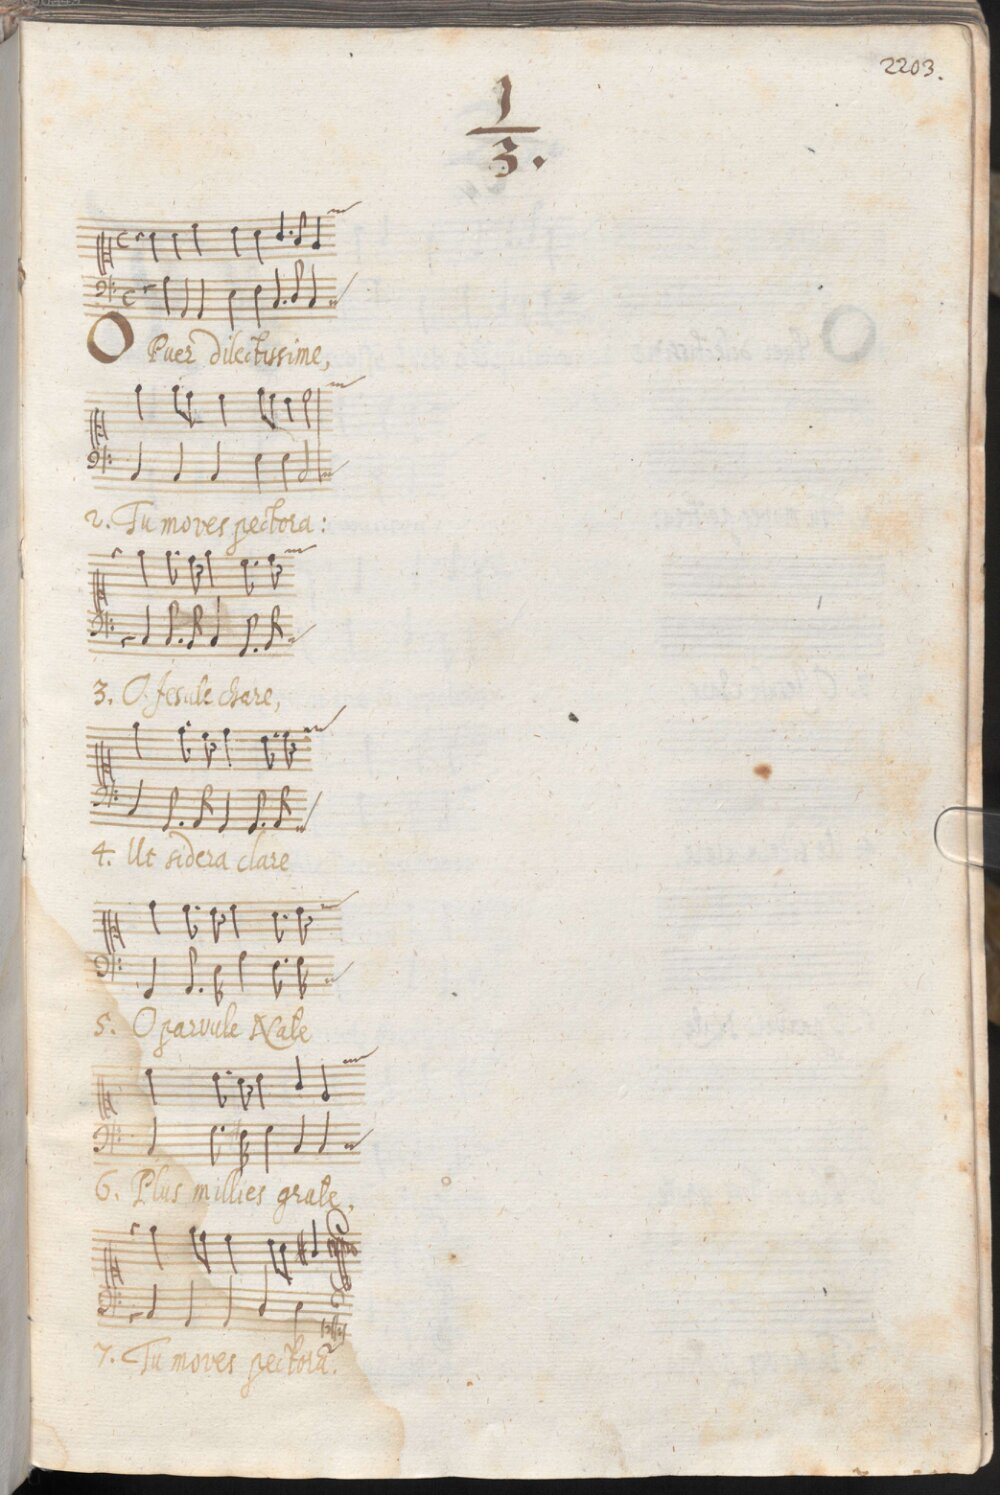 2203.
1
3.
O Puer dilectissime,
2. Tu moves pectora:
3. O Jesule chare,
4. Ut sidera clare
5. O parvule Nate
6. Plus millies grate,
7. Tu moves pectora.